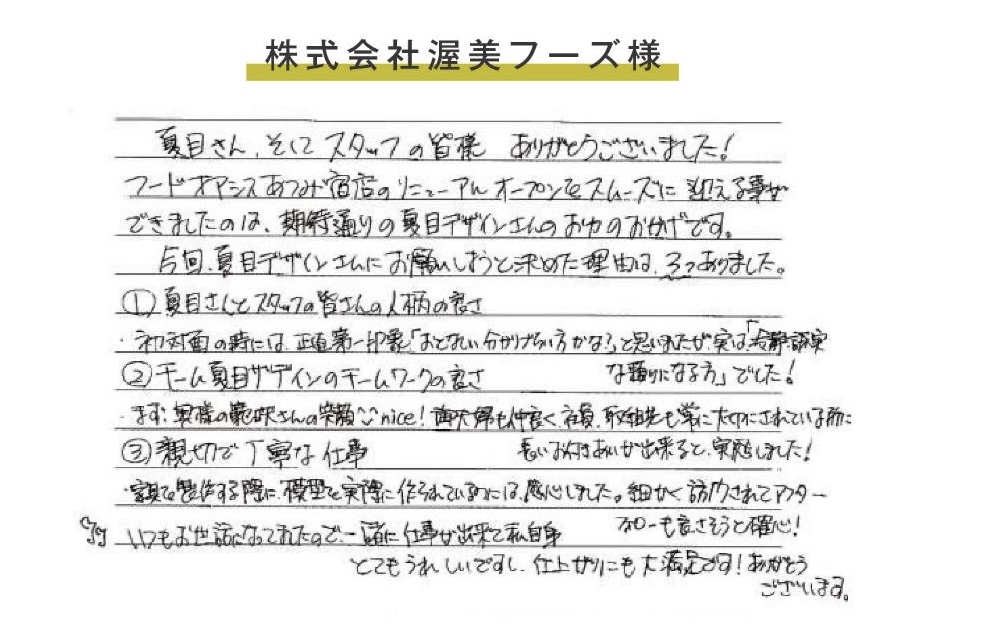 株式会社渥美フーズ様
夏目さん、そして スタッフの皆様 ありがとうございました!
フードオアシスあつみ 宿店のリニューアル オープンをスムーズに 迎える事が
できましたのは、期待通りの夏目デザインさんのお力のおかげです。
今回、夏目デザインさんにお願いしようと決めた理由は、3つありました。
①夏目さんとスタッフの皆さんの人柄の良さ
・初対面の時には、正直第一印象「おとなしい分かりづらい方かな?」と思いましたが、実は、「冷静 誠実
な頼りになる方」でした!
②チーム夏目デザインのチームワークの良さ
・まず、奥様の さんの笑顔 nice! 両夫婦も仲良く、社員、取組先も常に大切にされている為に
長いお付きあいが出来ると、実感しました!
③親切で丁寧な仕事
・家具を製作する際に、模型を実際に作られているのには、感心しました。細かく訪問されてアフター
フォローも良さそうと確信!
いつもお世話になってましたので、一緒に仕事が出来て私自身
とてもうれしいですし、仕上がりにも大満足です!ありがとう
ございます。